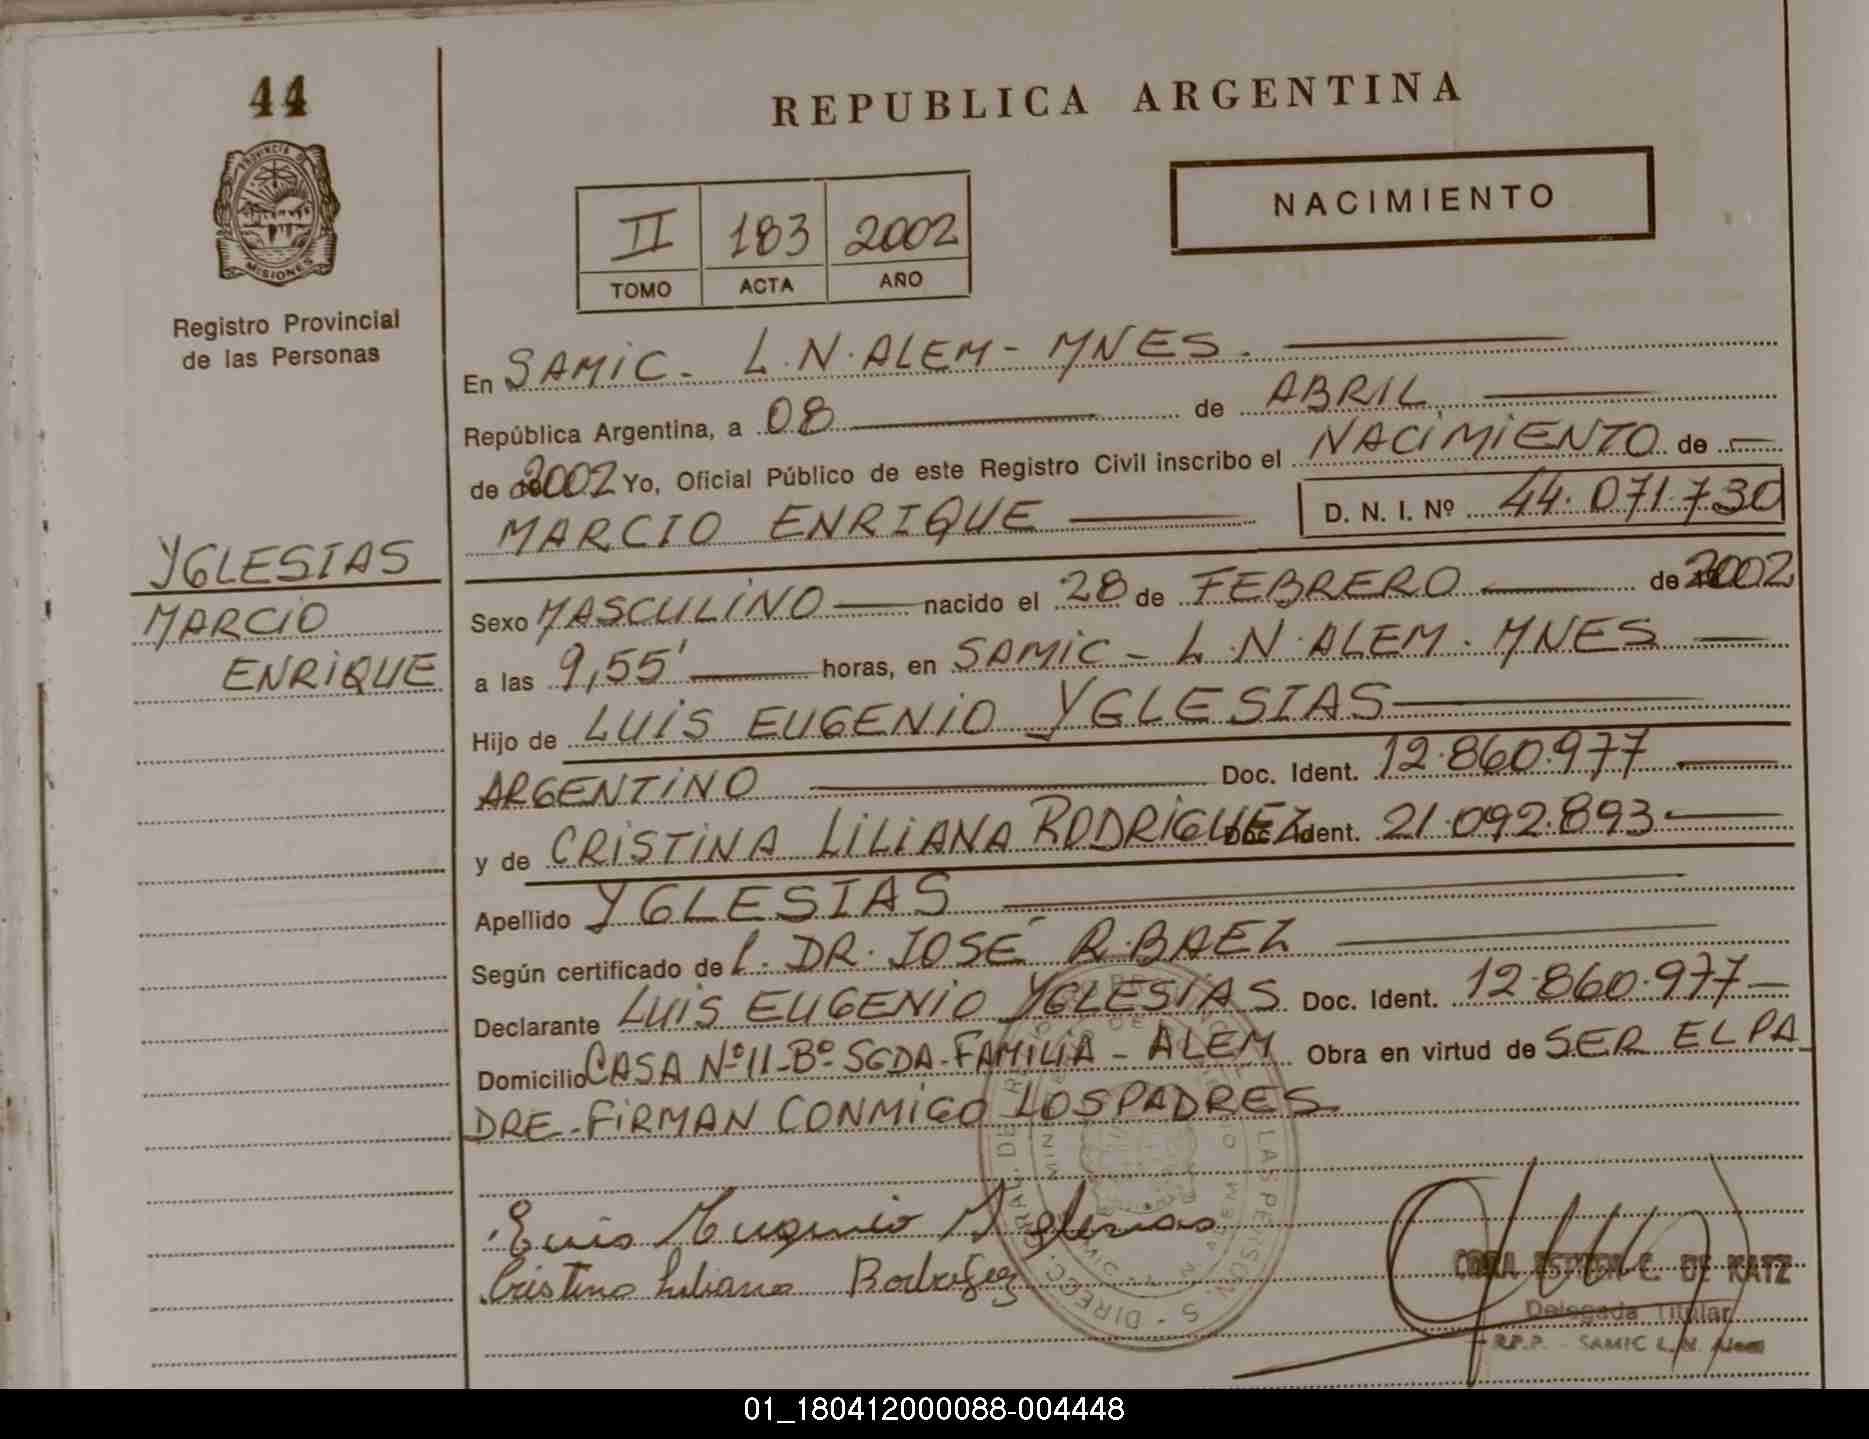 44
PROVINCIA DE
MISIONES
Registro Provincial
de las Personas
YGLESIAS
MARCIO
ENRIQUE
REPUBLICA ARGENTINA
NACIMIENTO
II 183 2002
TOMO ACTA AÑO
En SAMIC - L.N. ALEM - MNES.
República Argentina, a 08 de ABRIL
de 2002 Yo, Oficial Público de este Registro Civil inscribo el NACIMIENTO de
MARCIO ENRIQUE D. N. I. Nº 44.071.730
Sexo MASCULINO nacido el 28 de FEBRERO de 2002
a las 9,55' horas, en SAMIC - L.N. ALEM - MNES
Hijo de LUIS EUGENIO YGLESIAS
ARGENTINO Doc. Ident. 12.860.977
y de CRISTINA LILIANA RODRIGUEZ Doc. Ident. 21.092.893
Apellido YGLESIAS
Según certificado de l. DR. JOSÉ R. BAEZ
Declarante LUIS EUGENIO YGLESIAS Doc. Ident. 12.860.977
Domicilio CASA Nº 11 - Bº SGDA. FAMILIA - ALEM Obra en virtud de SER EL PA
DRE - FIRMAN CONMIGO LOS PADRES
Luis Eugenio Yglesias
Cristina Liliana Rodriguez
C. DE KATZ
Delegada Titular
R.P.P. - SAMIC L.N. Alem
01_180412000088-004448